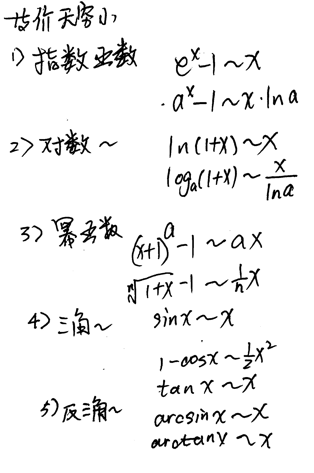 等价无穷小
1) 指数函数 e^x-1~x
a^x-1~x·lna
2) 对数~ ln(1+x)~x
log_a(1+x)~x/lna
3) 幂函数 (x+1)^a-1~ax
ⁿ√(1+x)-1~1/n x
4) 三角~ sinx~x
1-cosx~1/2 x^2
tanx~x
5) 反三角~ arcsinx~x
arctanx~x